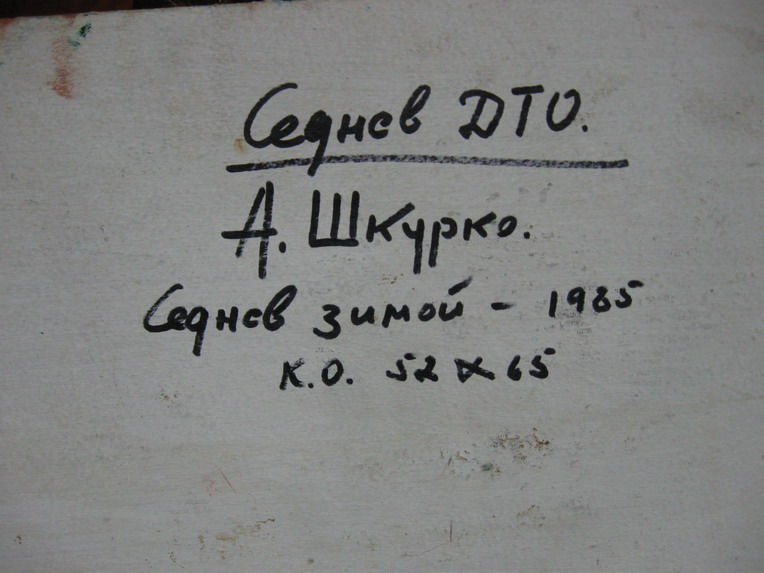 Седнев ДТО.
А. Шкурко.
Седнев зимой - 1985
К.О. 52 х 65